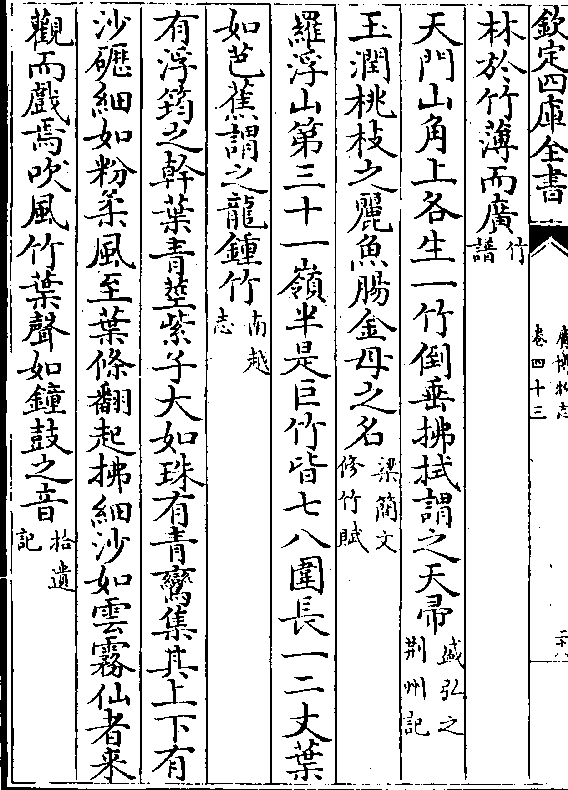 欽定四庫全書
廣博物志
卷四十三
林於竹薄而廣竹譜
天門山角上各生一竹倒垂拂拭謂之天帚盛弘之荆州記
玉潤桃枝之麗魚腸金母之名梁簡文修竹賦
羅浮山第三十一嶺半是巨竹皆七八圍長一二丈葉
如芭蕉謂之龍鍾竹南越志
有浮筠之幹葉青莖紫子大如珠有青鸞集其上下有
沙礰細如粉柔風至葉條翻起拂細沙如雲霧仙者来
觀而戲焉吹風竹葉聲如鐘鼓之音拾遺記